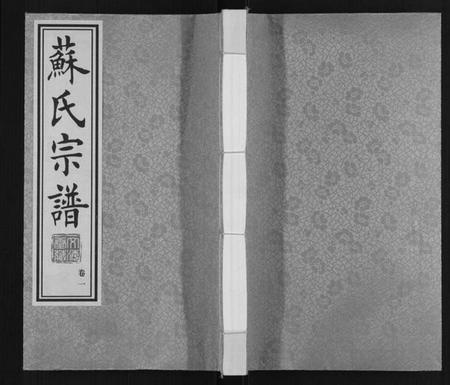 蘇氏宗譜
卷一